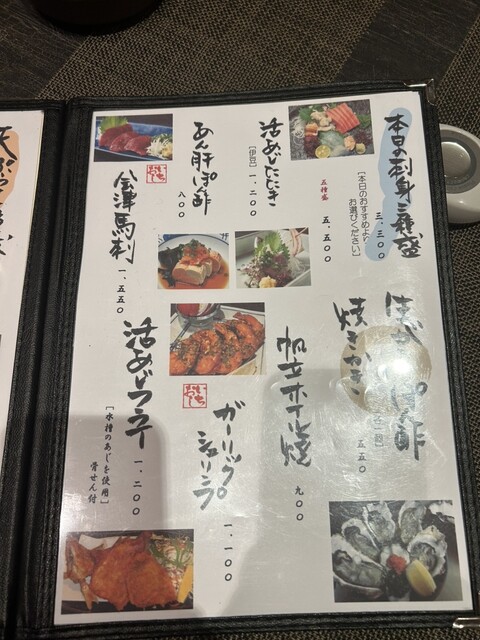 本日の刺身三種盛
三、三〇〇
[本日のおすすめより
お選びください]
五種盛
五、五〇〇
活あじたたき
[伊豆]一、二〇〇
あん肝ぽん酢
八〇〇
おすすめ
会津馬刺
一、五五〇
ぽん酢
焼きかき
五五〇
帆立バター焼
九〇〇
ガーリック
シュリンプ
一、一〇〇
活あじフライ
一、二〇〇
[水槽のあじを使用]
骨せん付
天ぷら